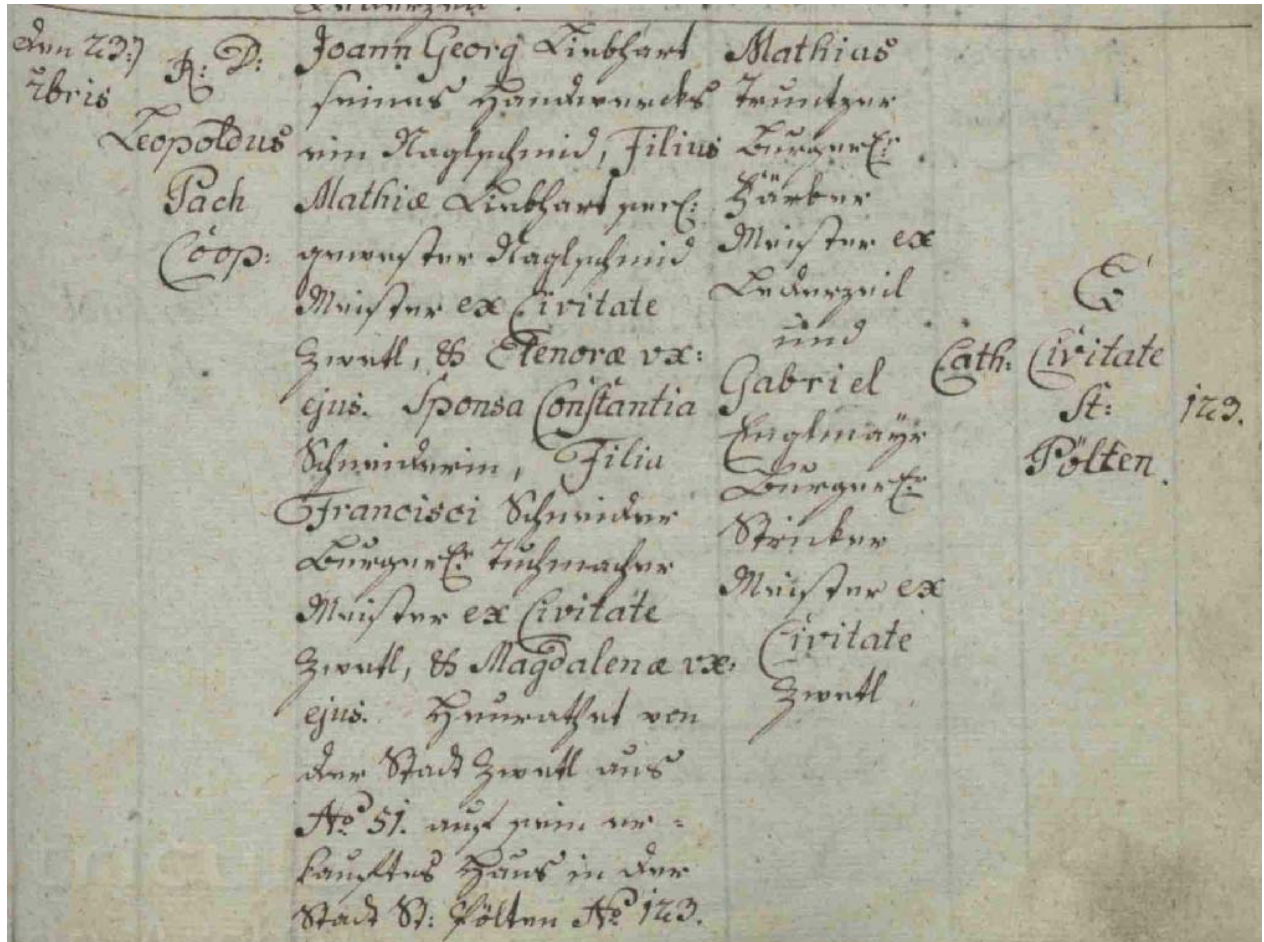 den 23:)
9bris
R: D:
Leopoldus
Pach
Coop:
Joann Georg Liebhart
seines Handwercks
ein Naglschmid, Filius
Mathiæ Liebhart seel:
gewester Naglschmid
Meister ex Civitate
Zwetl, & Elenoræ ux:
ejus. Sponsa Constantia
Schneiderin, Filia
Francisci Schneider
Burgerl: Tuchmacher
Meister ex Civitate
Zwetl, & Magdalenæ ux:
ejus. Heurathet von
der Stadt Zwetl aus
No 51. auf sein er-
kauftes Haus in der
Stadt St: Pölten No 123.
Mathias
Truntzer
Burgerl:
Färber
Meister ex
Lederzeil
und
Gabriel
Englmaÿr
Burgerl:
Stricker
Meister ex
Civitate
Zwetl
Cath:
E
Civitate
St:
Pölten.
123.